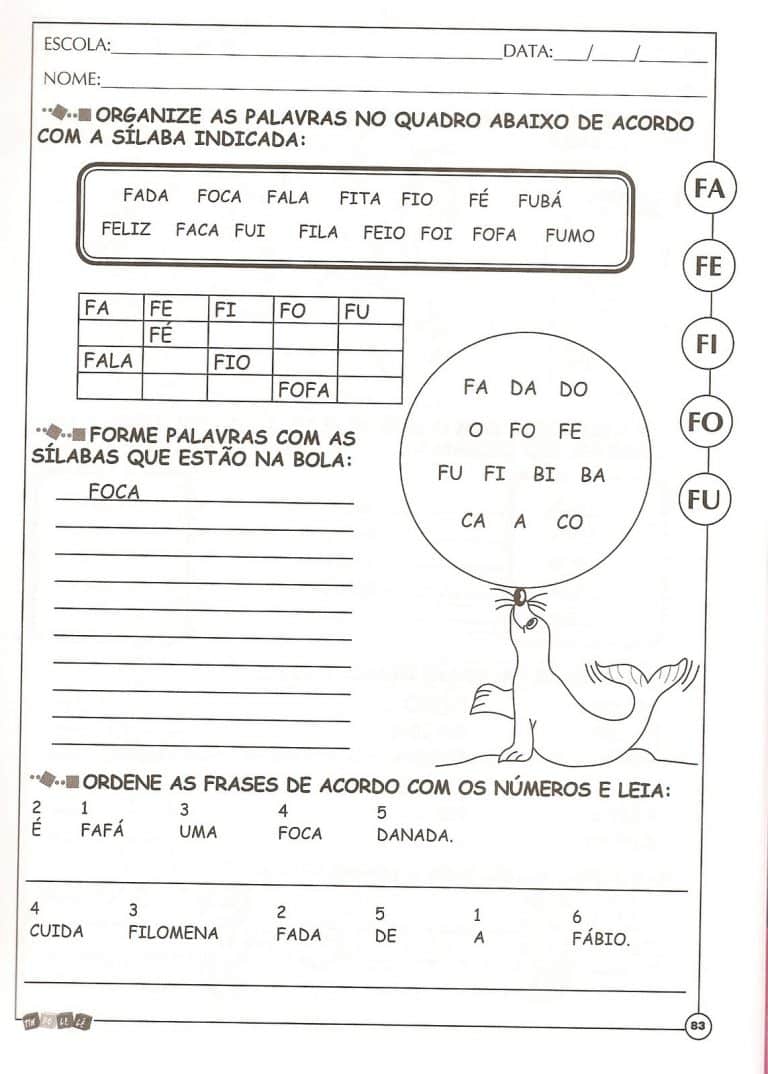 ESCOLA: DATA: / /
NOME:
ORGANIZE AS PALAVRAS NO QUADRO ABAIXO DE ACORDO
COM A SÍLABA INDICADA:
FADA FOCA FALA FITA FIO FÉ FUBÁ
FELIZ FACA FUI FILA FEIO FOI FOFA FUMO
FA
FE
FI
FO
FU
FA FE FI FO FU
FÉ
FALA FIO
FOFA
FORME PALAVRAS COM AS
SÍLABAS QUE ESTÃO NA BOLA:
FOCA
FA DA DO
O FO FE
FU FI BI BA
CA A CO
ORDENE AS FRASES DE ACORDO COM OS NÚMEROS E LEIA:
2 1 3 4 5
É FAFÁ UMA FOCA DANADA.
4 3 2 5 1 6
CUIDA FILOMENA FADA DE A FÁBIO.
83